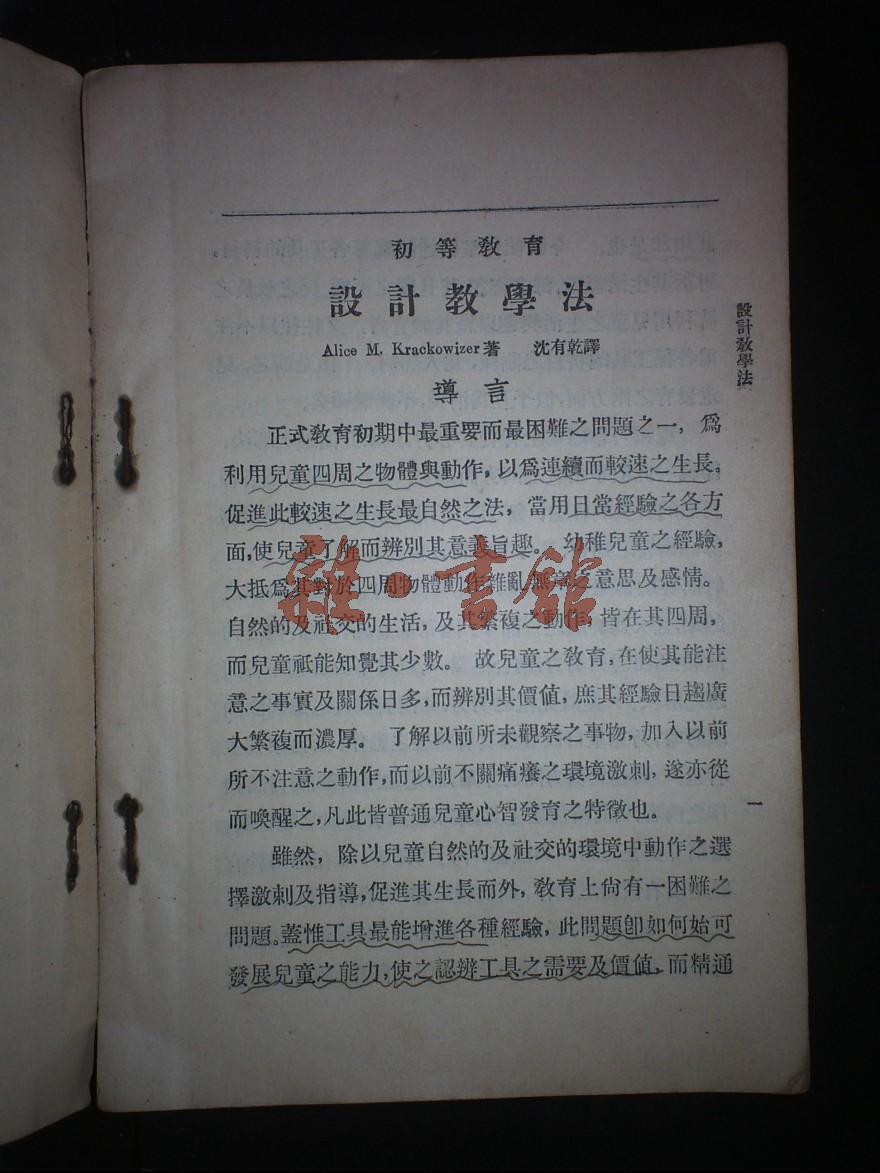 初等教育
設計教學法
Alice M. Krackowizer著 沈有乾譯
導言
正式教育初期中最重要而最困難之問題之一，爲
利用兒童四周之物體與動作，以爲連續而較速之生長。
促進此較速之生長最自然之法，當用日常經驗之各方
面，使兒童了解而辨別其意義旨趣。幼稚兒童之經驗，
大抵爲其對於四周物體動作雜亂無章之意思及感情。
自然的及社交的生活，及其繁複之動作，皆在其四周，
而兒童祗能知覺其少數。故兒童之教育，在使其能注
意之事實及關係日多，而辨別其價値，庶其經驗日趨廣
大繁複而濃厚。了解以前所未觀察之事物，加入以前
所不注意之動作，而以前不關痛癢之環境激刺，遂亦從
而喚醒之，凡此皆普通兒童心智發育之特徵也。
雖然，除以兒童自然的及社交的環境中動作之選
擇激刺及指導，促進其生長而外，教育上尙有一困難之
問題。蓋惟工具最能增進各種經驗，此問題卽如何始可
發展兒童之能力，使之認辨工具之需要及價値，而精通
設計教學法
一
雜·書館